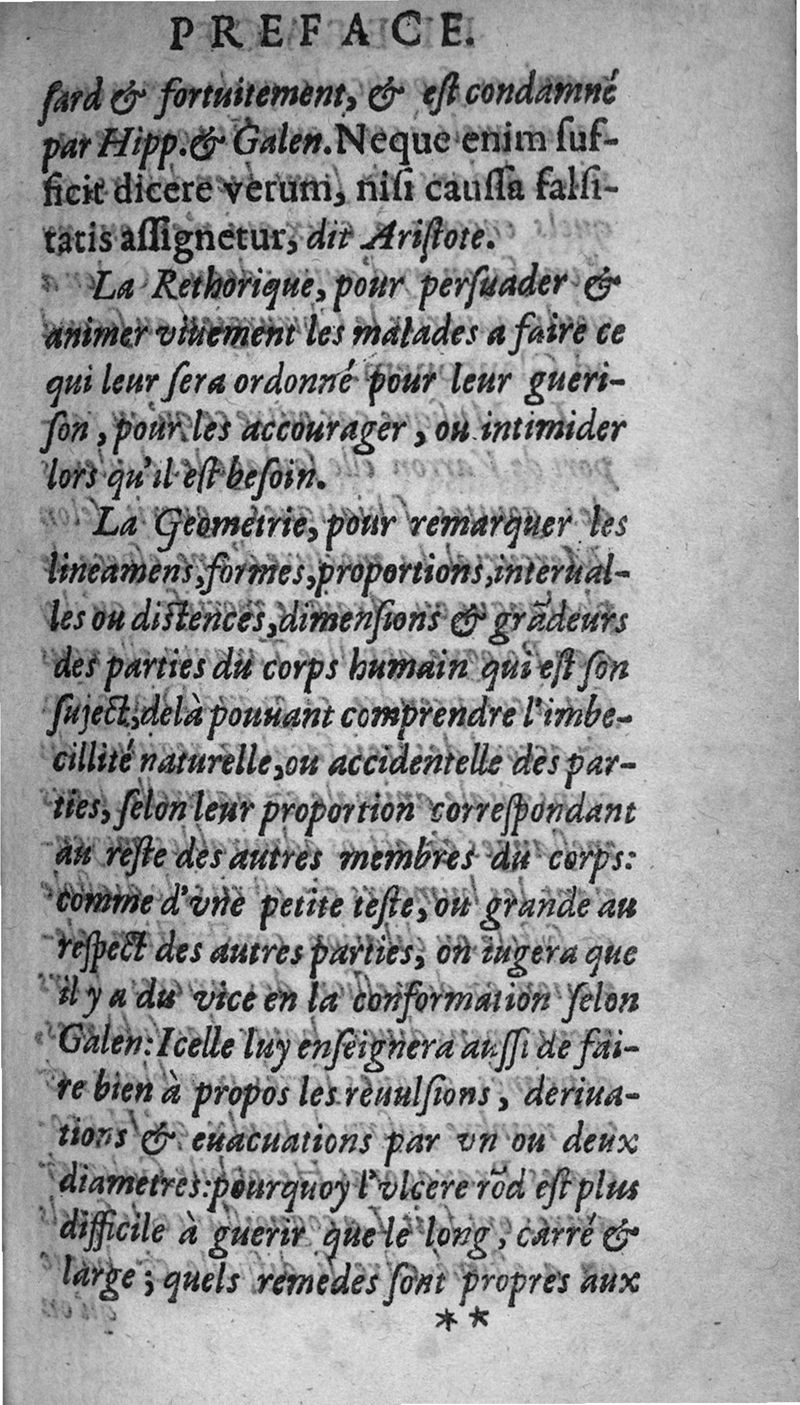 PREFACE.
ſard & fortuitement, & eſt condamné
par Hipp. & Galen. Neque enim ſuf-
ficit dicere verum, niſi cauſſa falſi-
tatis aſſignetur, dit Ariſtote.
La Rethorique, pour perſuader &
animer viuement les malades a faire ce
qui leur ſera ordonné pour leur gueri-
ſon, pour les accourager, ou intimider
lors qu'il eſt beſoin.
La Geometrie, pour remarquer les
lineamens, formes, proportions, interual-
les ou diſtences, dimenſions & grãdeurs
des parties du corps humain qui eſt ſon
ſuject, delà pouuant comprendre l'imbe-
cillité naturelle, ou accidentelle des par-
ties, ſelon leur proportion correſpondant
au reſte des autres membres du corps:
comme d'vne petite teſte, ou grande au
reſpect des autres parties, on iugera que
il y a du vice en la conformation ſelon
Galen: Icelle luy enſeignera auſſi de fai-
re bien à propos les reuulſions, deriua-
tions & euacuations par vn ou deux
diametres: pourquoy l'vlcere rõd eſt plus
difficile à guerir que le long, carré &
large; quels remedes ſont propres aux
**